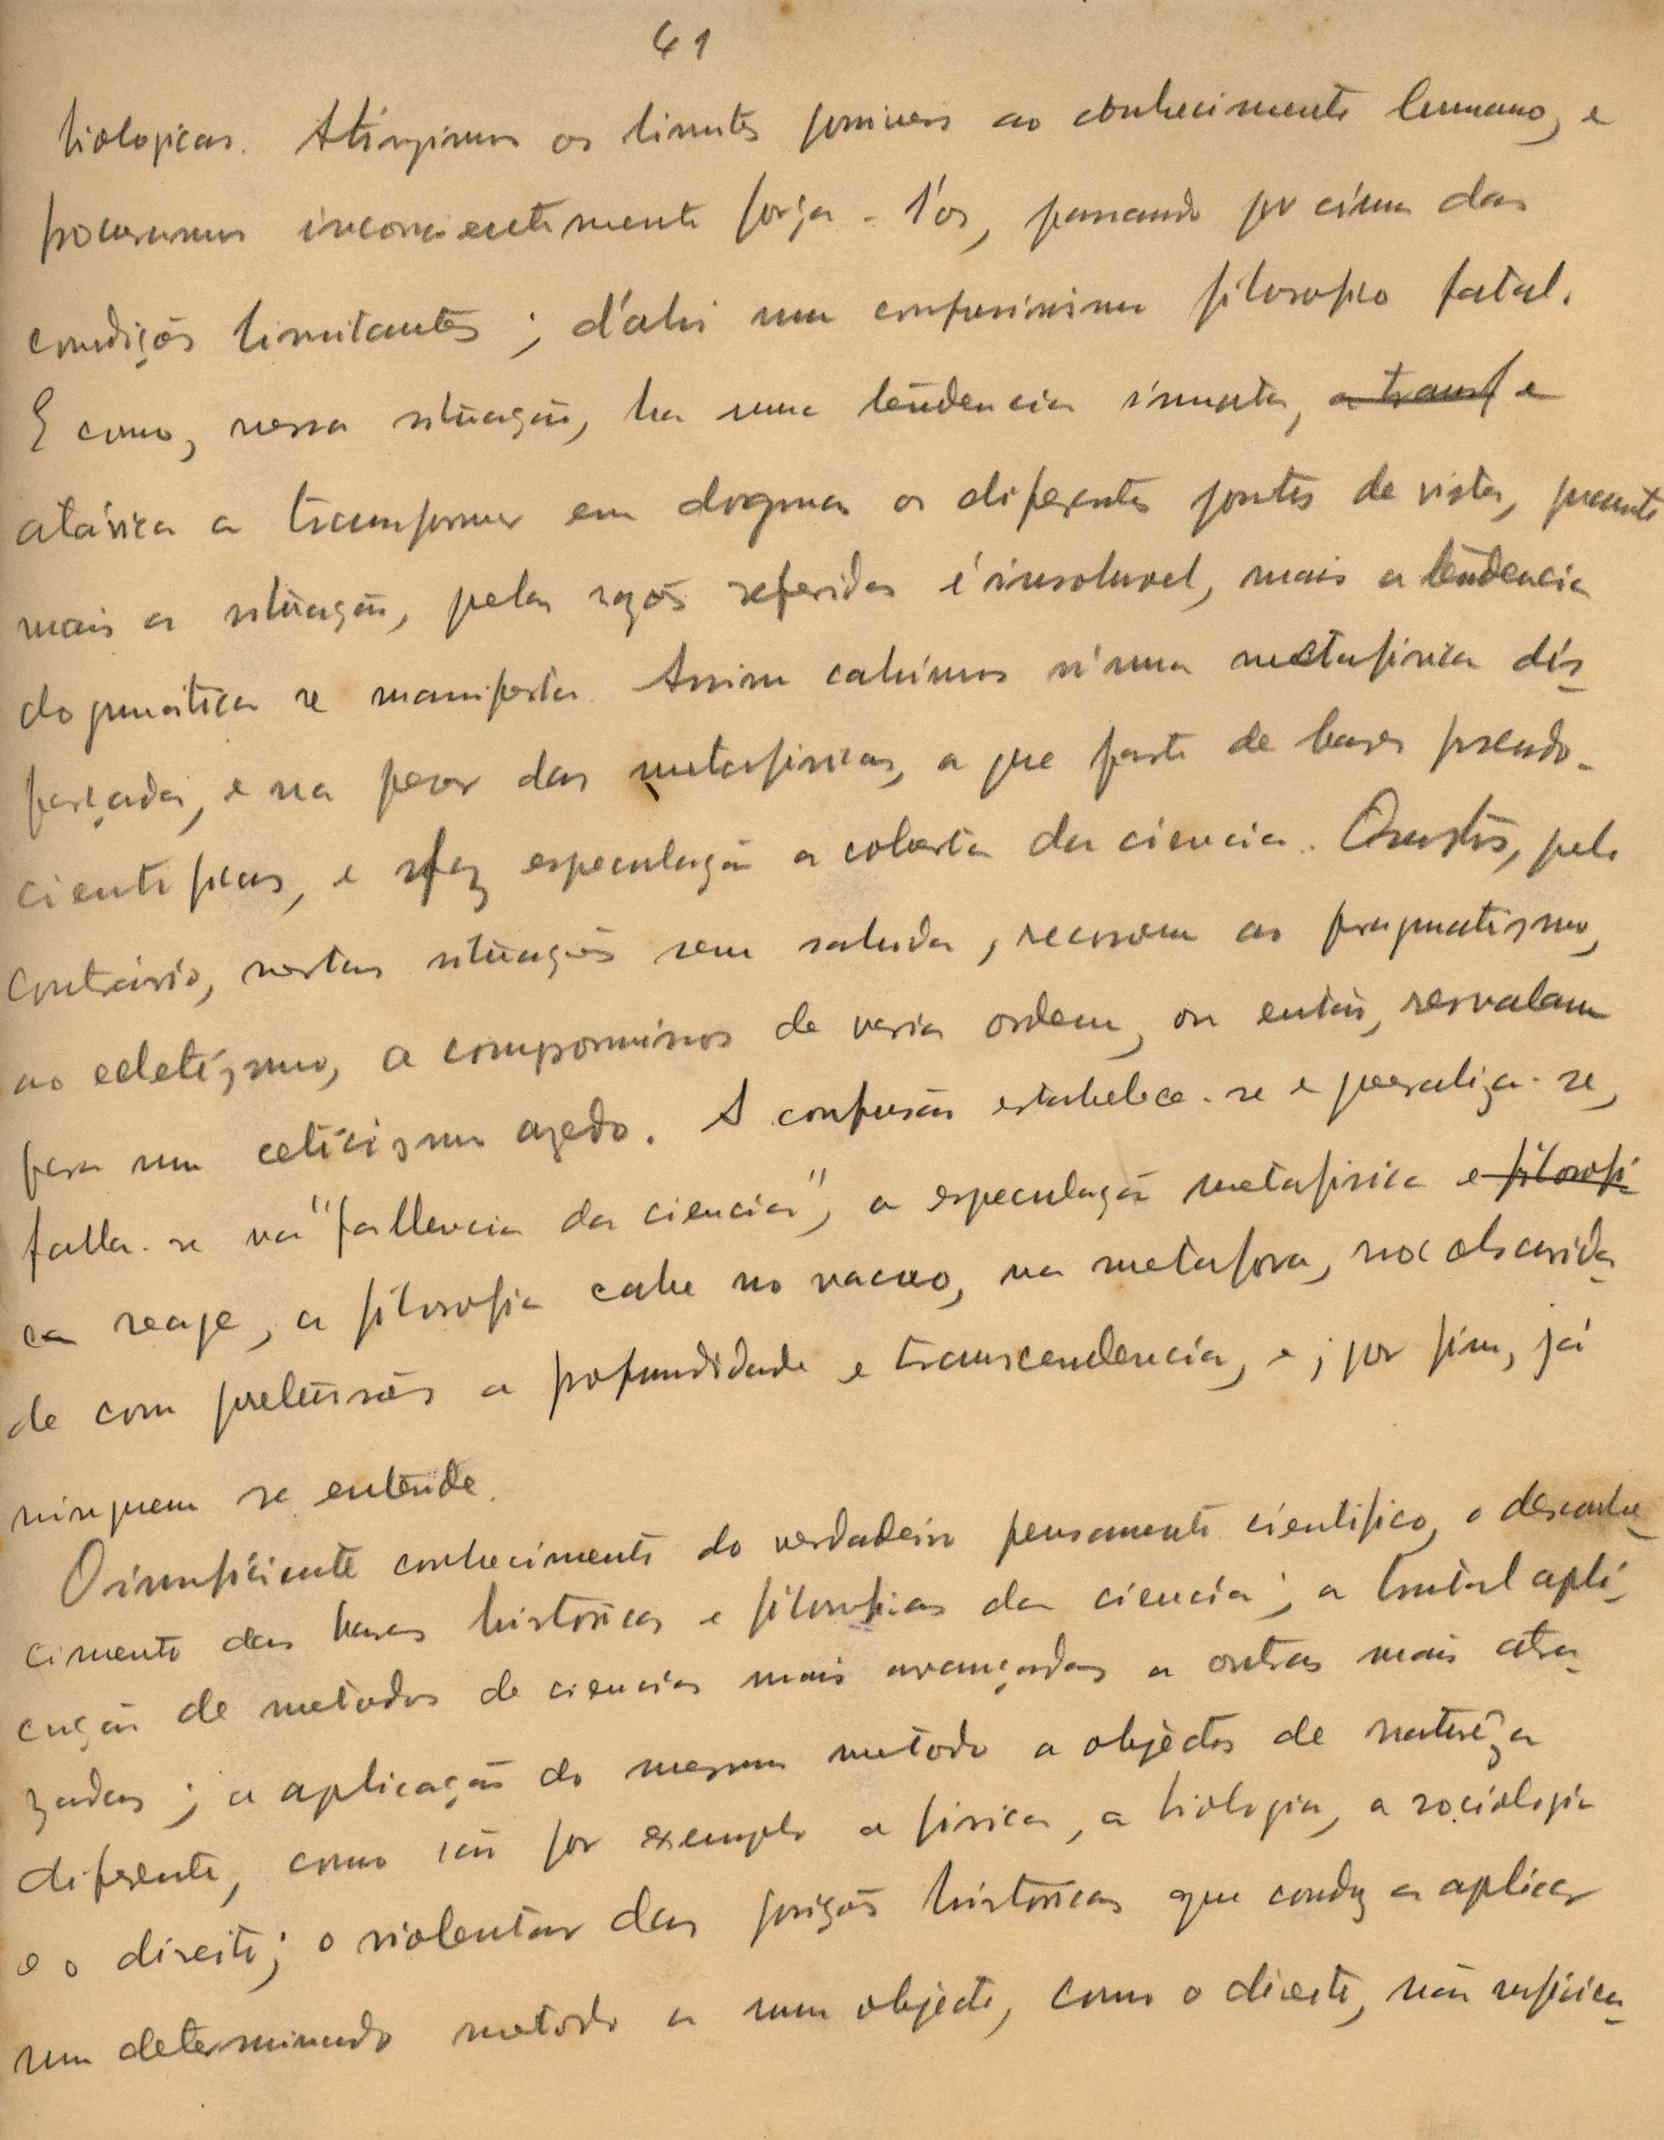 41
biologicas. Atingimos os limites possiveis ao conhecimento humano, e
procuramos inconscientemente força-l'os, passando por cima das
condições limitantes; d'ahi um confusissimo filosofico fatal.
E como, nessa situação, ha uma tendencia innata, a transf e
atávica a transformar em dogmas os diferentes pontos de vista, quanto
mais a situação, pelas razões referidas é insoluvel, mais a tendencia
dogmática se manifesta. Assim cahimos n'uma metafisica dis-
farçada, e na peor das metafisicas, a que parte de bases pseudo-
cientificas, e faz especulação a coberto da ciencia. Quantos, pelo
contrário, nestas situações sem sahida, recorrem ao pragmatismo,
ao ecletismo, a compromissos de varia ordem, ou então, resvalam
para um ceticismo azedo. A confusão estabelece-se e generaliza-se,
falla-se na "fallencia da ciencia", a especulação metafisica e filosofi
ca reage, a filosofia cahe no vacuo, na metafora, na obscurida-
de com pretensões a profundidade e transcendencia, e, por fim, já
ninguem se entende.
O insuficiente conhecimento do verdadeiro pensamento cientifico, o desconhe-
cimento das bases historicas e filosoficas da ciencia; a brutal apli-
cação de metodos de ciencias mais avançadas a outras mais atra-
zadas; a aplicação do mesmo método a objectos de natureza
diferente, como são por exemplo a fisica, a biologia, a sociologia
e o direito; o violentar das posições historicas que conduz a aplicar
um determinado metodo a um objecto, como o direito, não suficien-